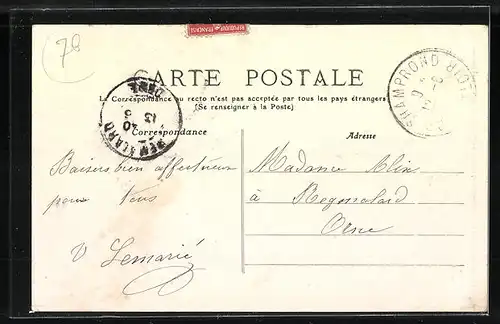 78
REPUBLIQUE FRANÇAISE
CARTE POSTALE
La Correspondance au recto n'est pas acceptée par tous les pays étrangers
(Se renseigner à la Poste)
CHAMPROND
REMALARD
Correspondance
Adresse
Baisers bien affectueux
pour tous
V Lemarié
Madame Blin
à Regmalard
Orne